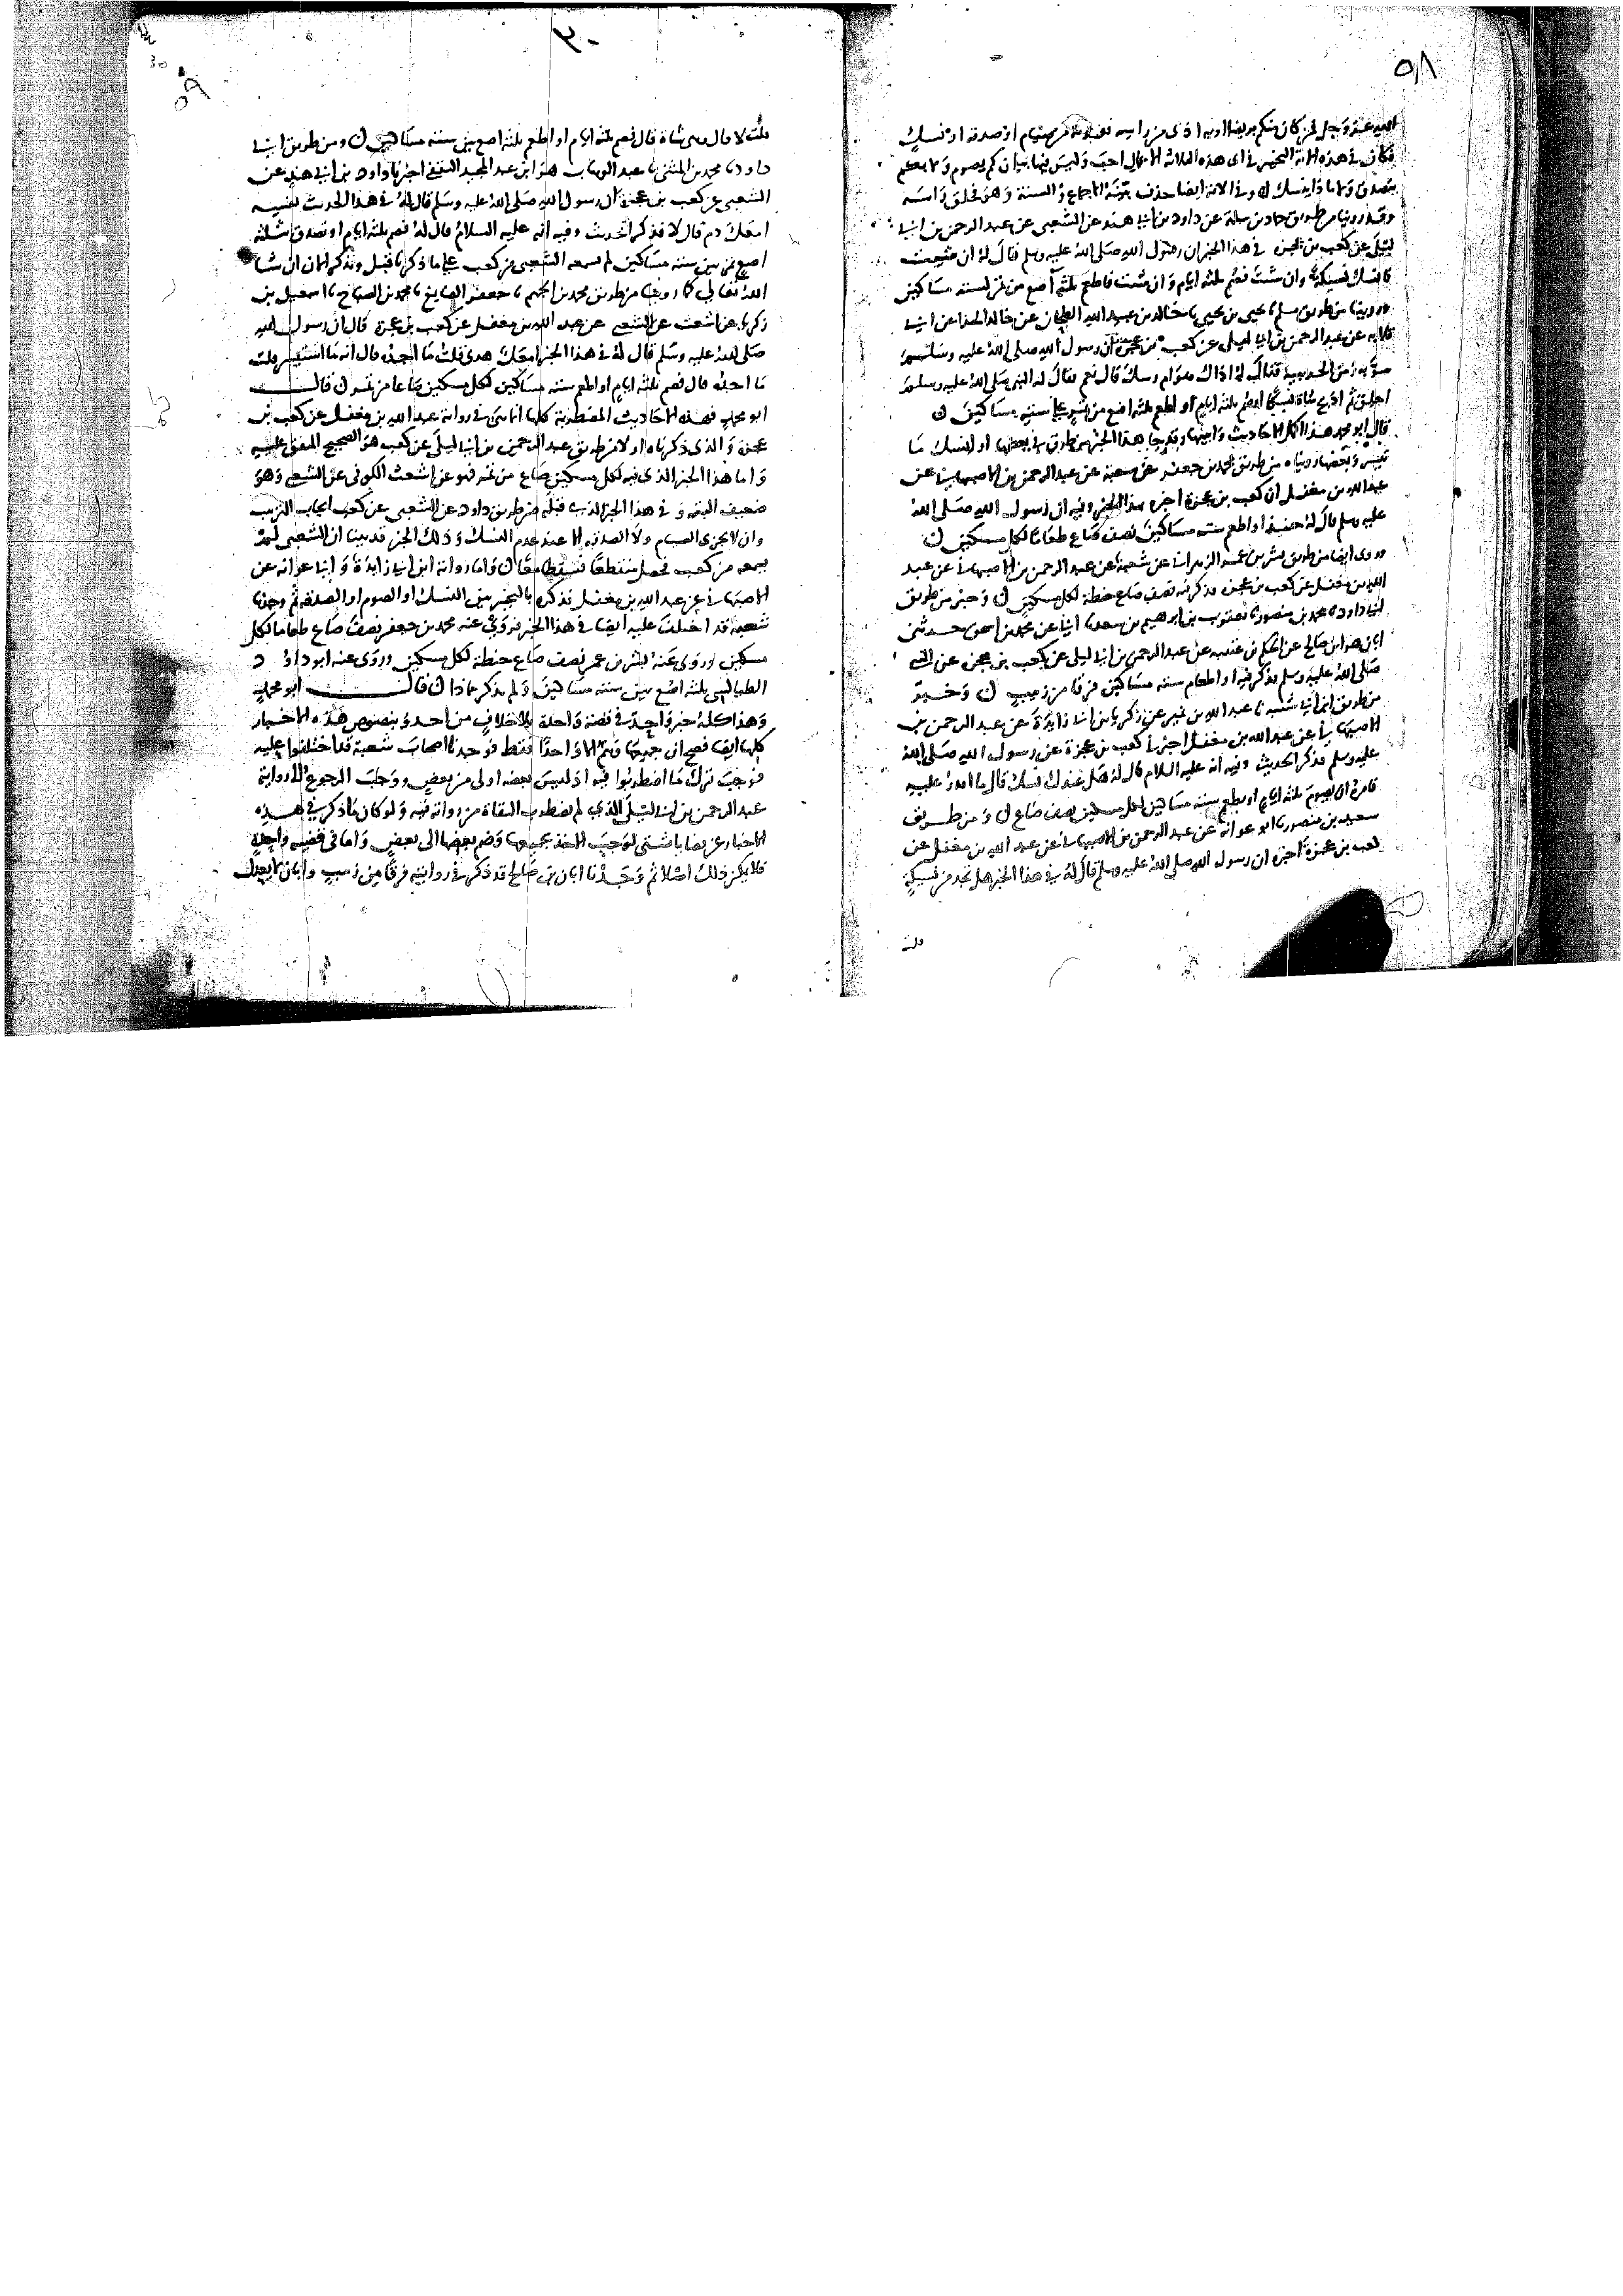 ٥٨
الله عز وجل فمن كان منكم مريضا او به اذى من راسه ففدية من صيام او صدقة او نسك
فكان في هذه الاية التخيير في اى هذه الثلاثة الاعمال احب وليس فيها بيان كم يصوم ولا بكم
يتصدق ولا ماذا ينسك وفي الاية ايضا حذف بينه الاجماع والسنة وهو فحلق راسه
وقد روينا من طريق حماد بن سلمة عن داود بن ابي هند عن الشعبي عن عبد الرحمن بن ابي
ليلى عن كعب بن عجرة في هذا الخبر ان رسول الله صلى الله عليه وسلم قال له ان شئت
فانسك نسيكة وان شئت فصم ثلثة ايام وان شئت فاطعم ثلثة آصع من تمر لستة مساكين
وروينا من طريق مسلم نا يحيى بن يحيى نا خالد بن عبد الله الطحان عن خالد الحذا عن ابي
قلابة عن عبد الرحمن بن ابي ليلى عن كعب بن عجرة ان رسول الله صلى الله عليه وسلم
مر به زمن الحديبية فقال له اذاك هوام راسك قال نعم فقال له النبي صلى الله عليه وسلم
احلق ثم اذبح شاة نسكا او صم ثلثة ايام او اطعم ثلثة اصع من تمر على ستة مساكين ن
قال ابو محمد هذا اكمل الاحاديث وابينها وقد جا هذا الخبر من طرق في بعضها او انسك ما
تيسر وبعضها رويناه من طريق محمد بن جعفر عن شعبة عن عبد الرحمن بن الاصبهاني عن
عبد الله بن مغفل ان كعب بن عجرة اخبره بهذا الخبر وفيه ان رسول الله صلى الله
عليه وسلم قال له حينئذ او اطعم ستة مساكين نصف صاع طعاما لكل مسكين ن
وروى ايضا من طريق بشر بن عمر الزهراني عن شعبة عن عبد الرحمن بن الاصبهاني عن عبد
الله بن مغفل عن كعب بن عجرة فذكر فيه نصف صاع حنطة لكل مسكين ن وخبر من طريق
ابي داود نا محمد بن منصور نا يعقوب بن ابراهيم بن سعد نا ابي عن محمد بن اسحق حدثني
ابان هو ابن صالح عن الحكم بن عتيبة عن عبد الرحمن بن ابي ليلى عن كعب بن عجرة عن النبي
صلى الله عليه وسلم فذكر فيه او اطعام ستة مساكين فرقا من زبيب ن وخبر
من طريق ابن ابي شيبة نا عبد الله بن نمير عن زكريا بن ابي زايدة عن عبد الرحمن بن
الاصبهاني عن عبد الله بن مغفل اخبرني كعب بن عجرة عن رسول الله صلى الله
عليه وسلم فذكر الحديث وفيه انه عليه السلام قال له هل عندك نسك قال ما اقدر عليه
فامره ان يصوم ثلثة ايام او يطعم ستة مساكين لكل مسكين نصف صاع ن ومن طريق
سعيد بن منصور نا ابو عوانة عن عبد الرحمن بن الاصبهاني عن عبد الله بن مغفل عن
كعب بن عجرة اخبره ان رسول الله صلى الله عليه وسلم قال له في هذا الخبر هل تجد من نسيكة
قلت
٣٠
30
٥٩
قلت لا قال وهى شاة قال فصم ثلثة ايام او اطعم ثلثة اصع بين ستة مساكين ن ومن طريق ابي
داود نا محمد بن المثنى نا عبد الوهاب هو ابن عبد المجيد الثقفي اخبرنا داود بن ابي هند عن
الشعبي عن كعب بن عجرة ان رسول الله صلى الله عليه وسلم قال له في هذا الحديث نفسه
امعك دم قال لا فذكر الحديث وفيه انه عليه السلام قال له فصم ثلثة ايام او تصدق بثلثة
اصع تمر بين ستة مساكين لم يسمعه الشعبي من كعب على ما ذكرنا قبل ونذكر الان ان شا
الله تعالى كما روينا من طريق محمد بن الجهم نا جعفر الصايغ نا محمد بن الصباح نا اسمعيل بن
زكريا عن اشعث عن الشعبي عن عبد الله بن مغفل عن كعب بن عجرة قال ان رسول الله
صلى الله عليه وسلم قال له في هذا الخبر امعك هدى قلت ما اجده قال انه ما استيسر قلت
ما اجده قال فصم ثلثة ايام او اطعم ستة مساكين لكل مسكين صاعا من تمر ن قال
ابو محمد فهذه الاحاديث المضطربة كلها انما هى في رواية عبد الله بن مغفل عن كعب بن
عجرة والذى ذكرناه اولا من طريق عبد الرحمن بن ابي ليلى عن كعب هو الصحيح المتفق عليه
واما هذا الخبر الذى فيه لكل مسكين صاع من تمر فهو عن اشعث الكوفي عن الشعبي وهو
ضعيف البتة وفي هذا الخبر الذى قبله من طريق داود عن الشعبي عن كعب ايجاب الترتيب
وان لا يجزى الصيام ولا الصدقة الا عند عدم النسك وذلك الخبر قد بينا ان الشعبي لم
يسمعه من كعب فحصل منقطعا فسقطا معا ن واما رواية ابن ابي زايدة وابي عوانة عن
الاصبهاني عن عبد الله بن مغفل بذكره بالتخيير بين النسك او الصوم او الصدقة ثم وجدنا
شعبة قد اختلف عليه ايضا في هذا الخبر فروى عنه محمد بن جعفر نصف صاع طعاما لكل
مسكين وروى عنه بشر بن عمر نصف صاع حنطة لكل مسكين وروى عنه ابو داود
الطيالسي ثلثة اصع بين ستة مساكين ولم يذكر ماذا ن قال ابو محمد
وهذا كله خبر واحد في قصة واحدة بلا خلاف من احد وبنصوص هذه الاخبار
كلها ايضا فصح ان جميعها وهم الا واحدا فقط فوجدنا اصحاب شعبة قد اختلفوا عليه
فوجب ترك ما اضطربوا فيه اذ ليس بعضه اولى من بعض ووجب الرجوع الى رواية
عبد الرحمن بن ابي ليلى الذي لم يضطرب الثقاة من رواته فيه ولو كان ما ذكر في هذه
الاخبار عن قضايا شتى لوجب الاخذ بجميعها وضم بعضها الى بعض واما في قضية واحدة
فلا يمكن ذلك اصلا ثم وجدنا ابان بن صالح قد ذكر في روايته فرقا من زبيب وابان لا يعدل